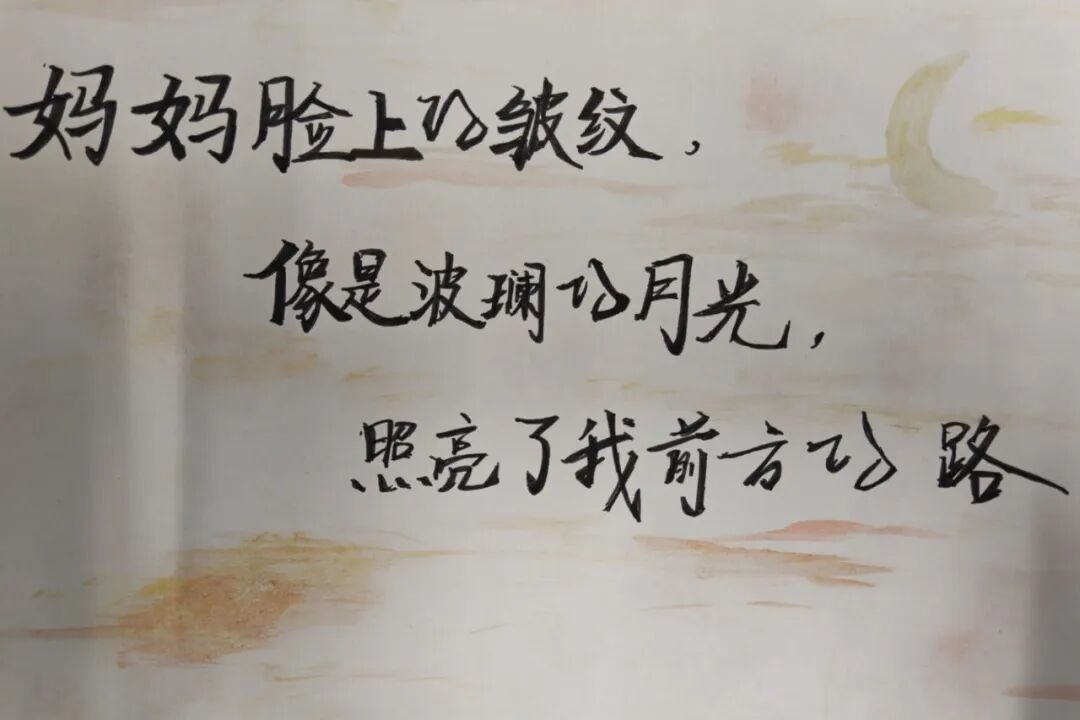 妈妈脸上的皱纹，
像是波斓的月光，
照亮了我前方的路